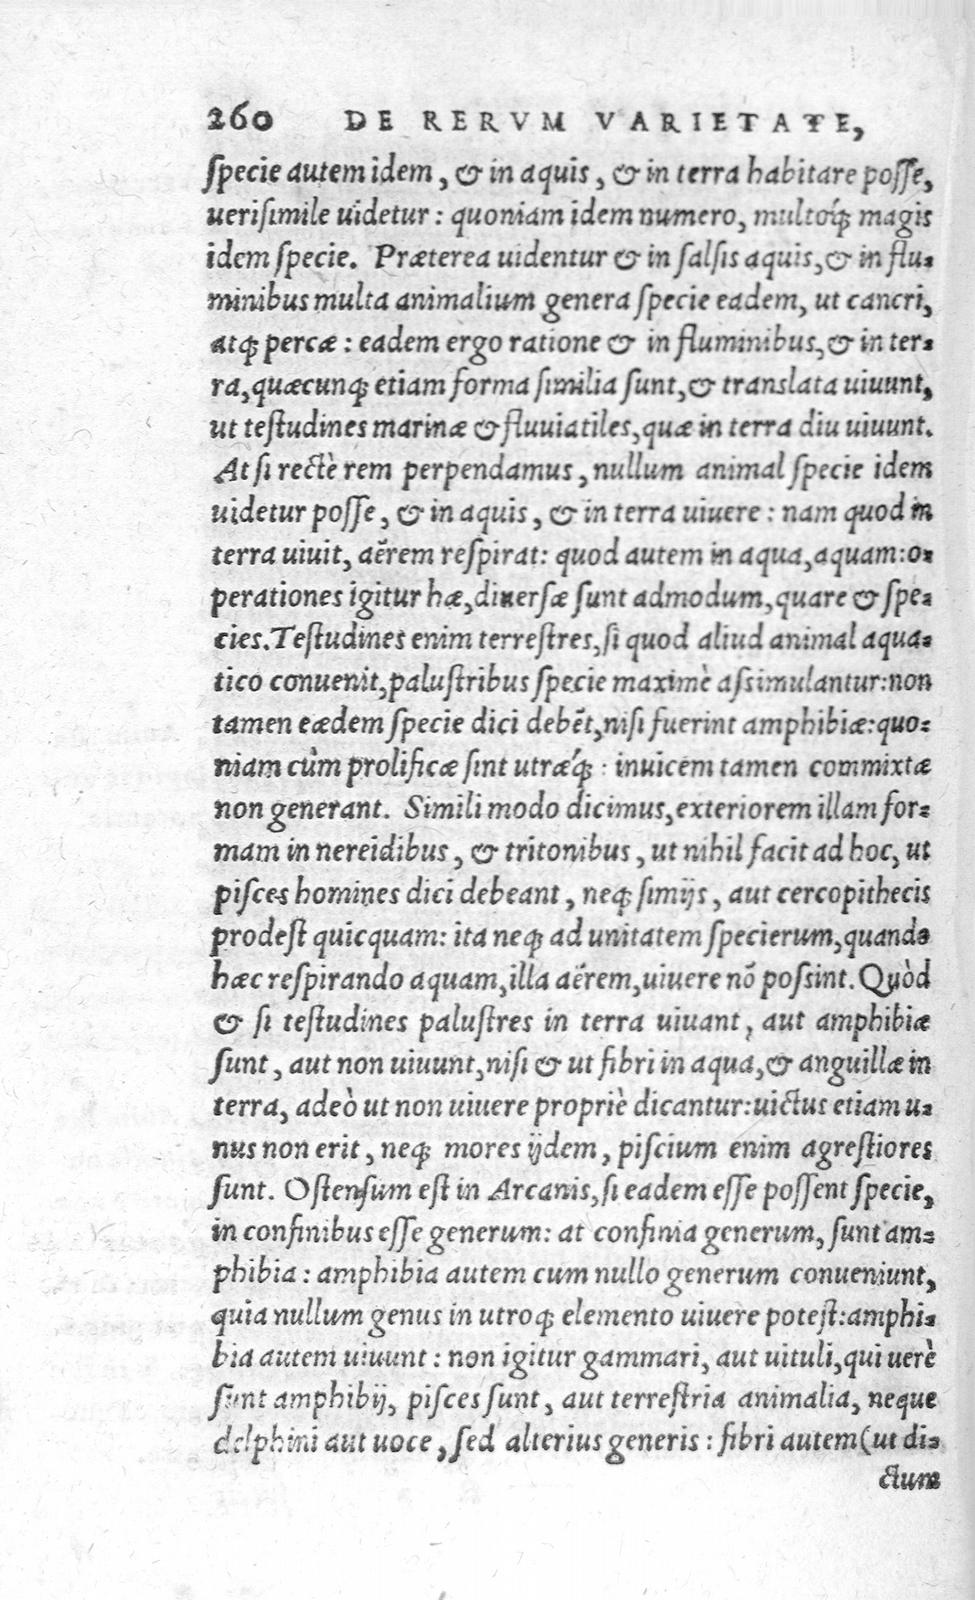 260 DE RERVM VARIETATE,
ſpecie autem idem, & in aquis, & in terra habitare poſſe,
ueriſimile uidetur: quoniam idem numero, multóq́; magis
idem ſpecie. Præterea uidentur & in ſalſis aquis, & in flu-
minibus multa animalium genera ſpecie eadem, ut cancri,
atq; percæ: eadem ergo ratione & in fluminibus, & in ter-
ra, quæcunq; etiam forma ſimilia ſunt, & translata uiuunt,
ut teſtudines marinæ & fluuiatiles, quæ in terra diu uiuunt.
At ſi rectè rem perpendamus, nullum animal ſpecie idem
uidetur poſſe, & in aquis, & in terra uiuere: nam quod in
terra uiuit, aërem reſpirat: quod autem in aqua, aquam: o-
perationes igitur hæ, diuerſæ ſunt admodum, quare & ſpe-
cies. Teſtudines enim terreſtres, ſi quod aliud animal aqua-
tico conuenit, paluſtribus ſpecie maximè aſsimulantur: non
tamen eædem ſpecie dici debēt, niſi fuerint amphibiæ: quo-
niam cùm prolificæ ſint utræq́;: inuicem tamen commixtæ
non generant. Simili modo dicimus, exteriorem illam for-
mam in nereidibus, & tritonibus, ut nihil facit ad hoc, ut
piſces homines dici debeant, neq; ſimijs, aut cercopithecis
prodeſt quicquam: ita neq; ad unitatem ſpecierum, quando
hæc reſpirando aquam, illa aërem, uiuere nō poſsint. Quòd
& ſi teſtudines paluſtres in terra uiuant, aut amphibiæ
ſunt, aut non uiuunt, niſi & ut fibri in aqua, & anguillæ in
terra, adeò ut non uiuere propriè dicantur: uictus etiam u-
nus non erit, neq; mores ijdem, piſcium enim agreſtiores
ſunt. Oſtenſum eſt in Arcanis, ſi eadem eſſe poſſent ſpecie,
in confinibus eſſe generum: at confinia generum, ſunt am-
phibia: amphibia autem cum nullo generum conueniunt,
quia nullum genus in utroq; elemento uiuere poteſt: amphi-
bia autem uiuunt: non igitur gammari, aut uituli, qui uerè
ſunt amphibij, piſces ſunt, aut terreſtria animalia, neque
delphini aut uoce, ſed alterius generis: fibri autem (ut di-
ctum